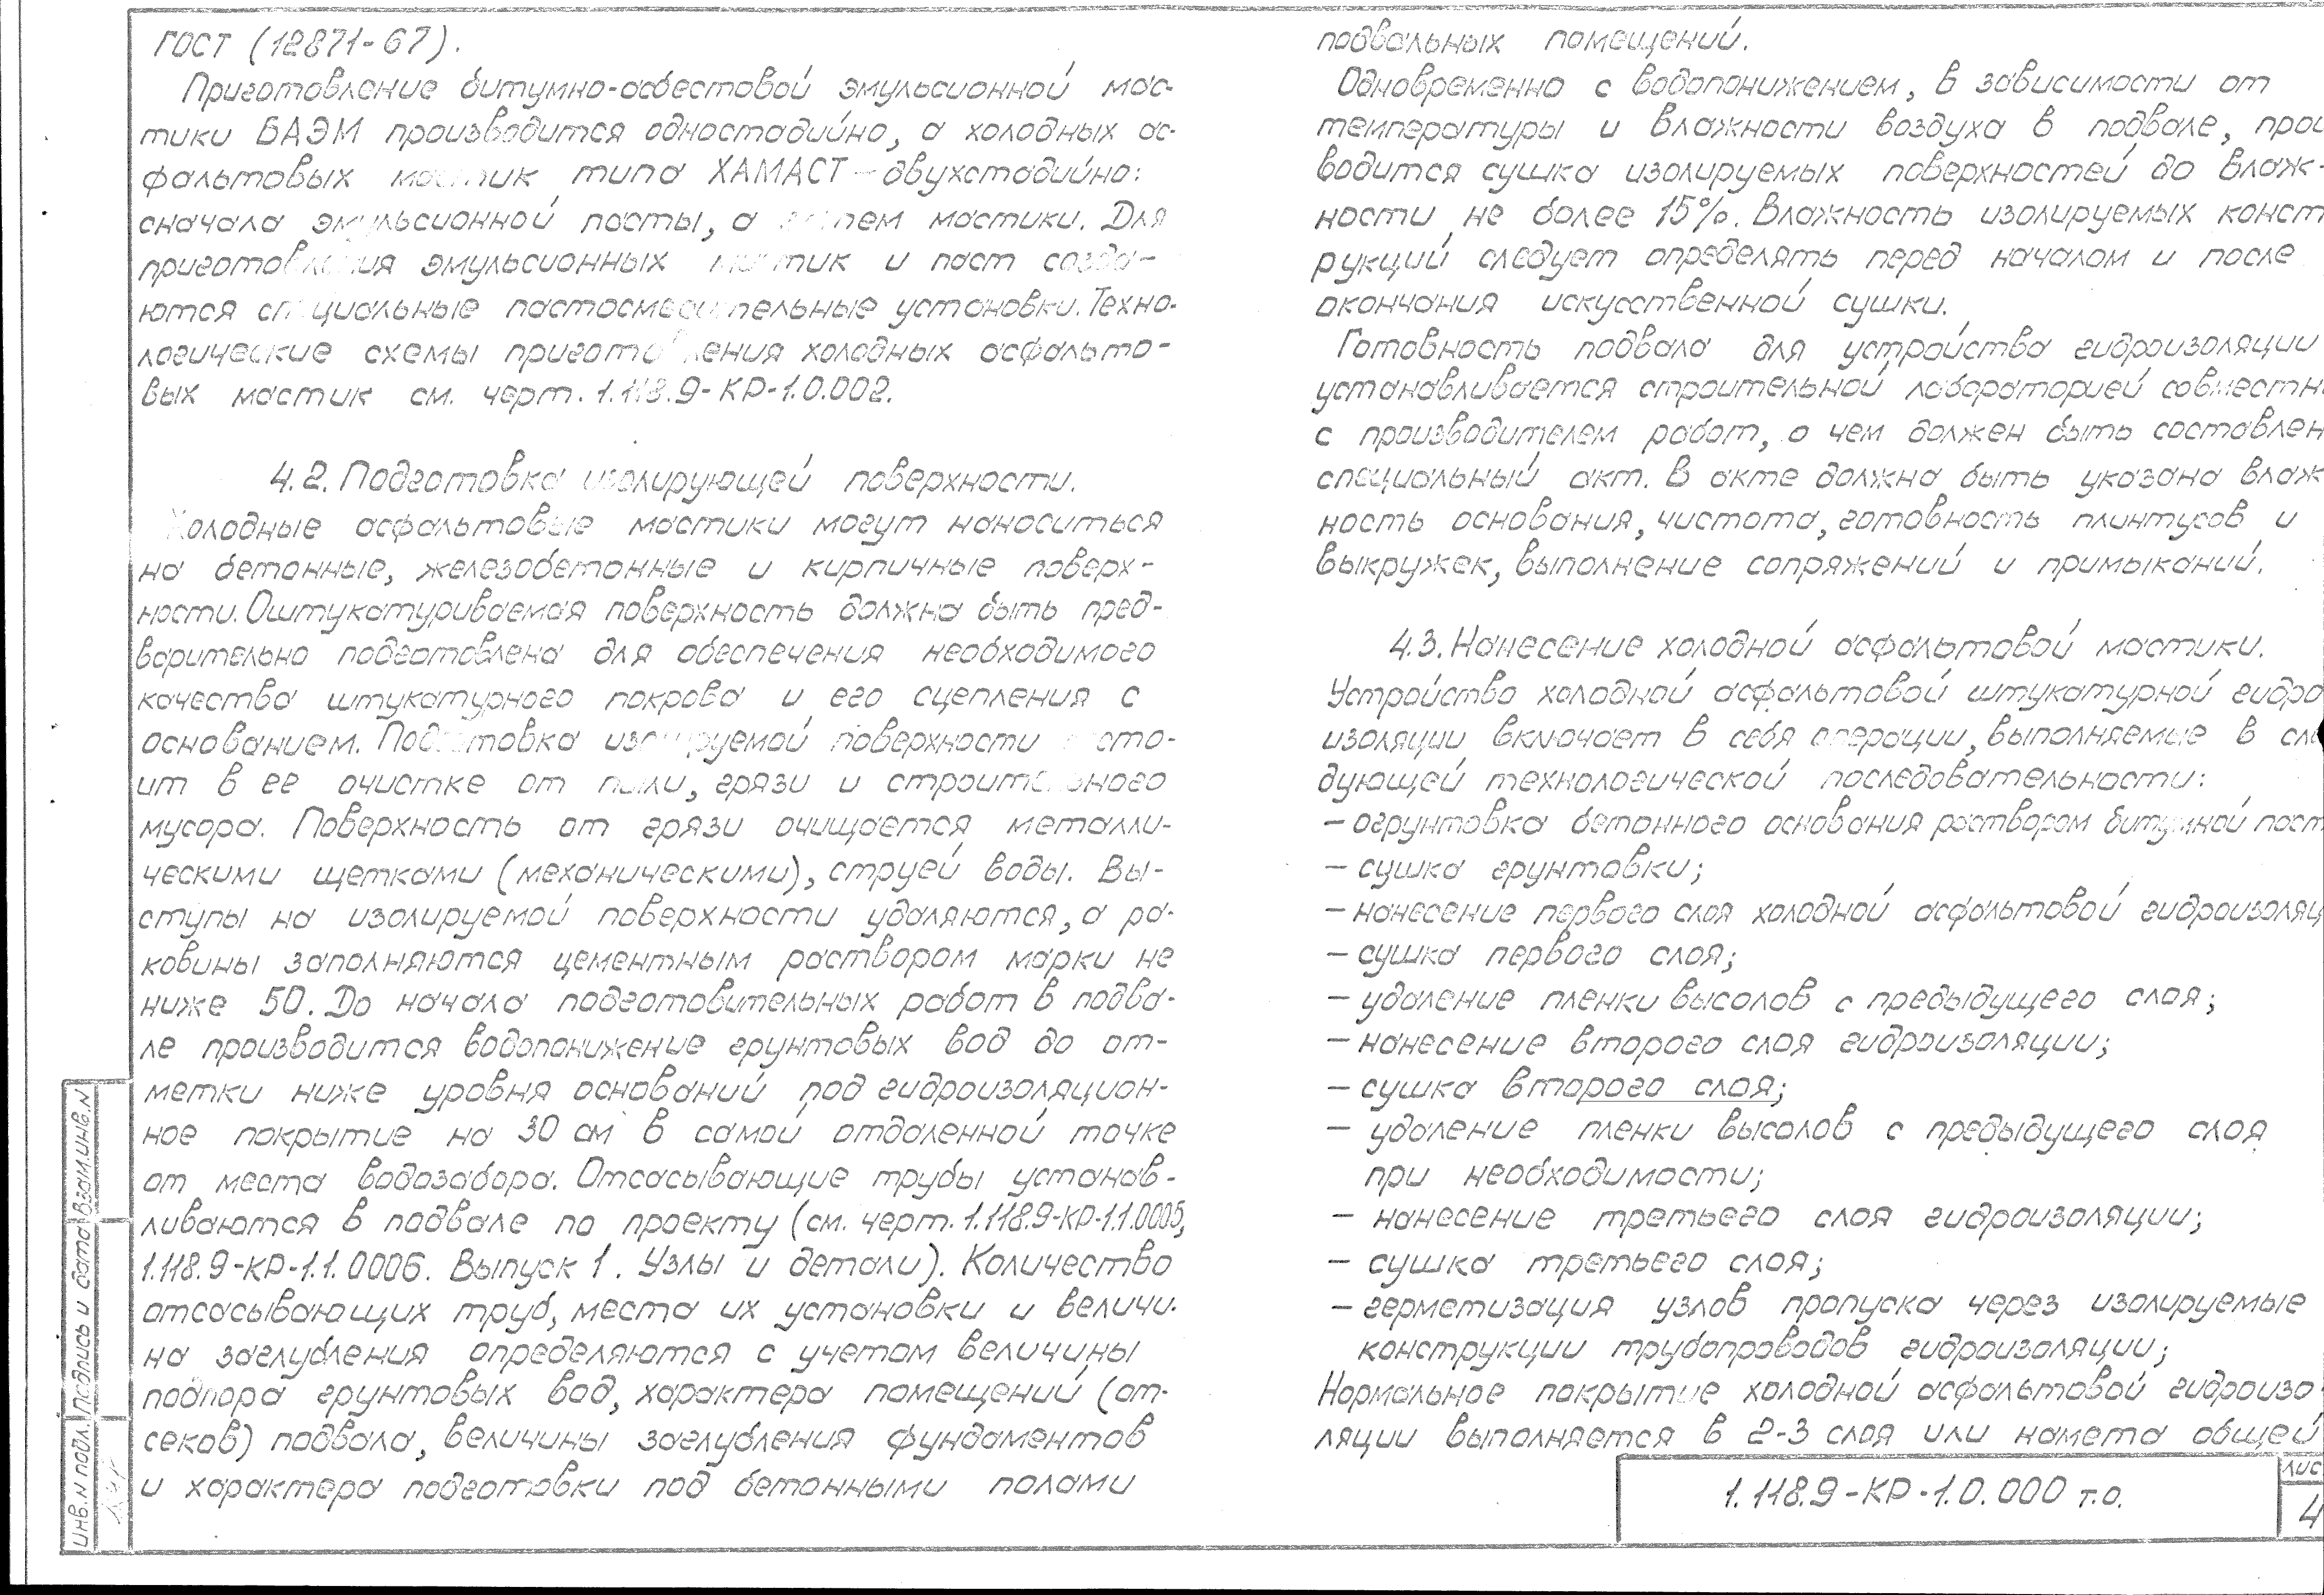 ГОСТ (12871-67).
Приготовление битумно-асбестовой эмульсионной мас-
тики БАЭМ производится одностадийно, а холодных ас-
фальтовых мастик типа ХАМАСТ - двухстадийно:
сначала эмульсионной пасты, а затем мастики. Для
приготовления эмульсионных мастик и паст созда-
ются специальные пастосмесительные установки. Техно-
логические схемы приготовления холодных асфальто-
вых мастик см. черт. 1.118.9-КР-1.0.002.
4.2. Подготовка изолирующей поверхности.
Холодные асфальтовые мастики могут наноситься
на бетонные, железобетонные и кирпичные поверх-
ности. Оштукатуриваемая поверхность должна быть пред-
варительно подготовлена для обеспечения необходимого
качества штукатурного покрова и его сцепления с
основанием. Подготовка изолируемой поверхности состо-
ит в ее очистке от пыли, грязи и строительного
мусора. Поверхность от грязи очищается металли-
ческими щетками (механическими), струей воды. Вы-
ступы на изолируемой поверхности удаляются, а ра-
ковины заполняются цементным раствором марки не
ниже 50. До начала подготовительных работ в подва-
ле производится водопонижение грунтовых вод до от-
метки ниже уровня оснований под гидроизоляцион-
ное покрытие на 30 см в самой отдаленной точке
от места водозабора. Отсасывающие трубы установ-
ливаются в подвале по проекту (см. черт. 1.118.9-КР-1.1.0005,
1.118.9-КР-1.1.0006. Выпуск 1. Узлы и детали). Количество
отсасывающих труб, места их установки и величи-
на заглубления определяются с учетом величины
подпора грунтовых вод, характера помещений (от-
секов) подвала, величины заглубления фундаментов
и характера подготовки под бетонными полами
подвальных помещений.
Одновременно с водопонижением, в зависимости от
температуры и влажности воздуха в подвале, прои
водится сушка изолируемых поверхностей до влаж-
ности не более 15%. Влажность изолируемых конст
рукций следует определять перед началом и после
окончания искусственной сушки.
Готовность подвала для устройства гидроизоляции
устанавливается строительной лабораторией совместн
с производителем работ, о чем должен быть составлен
специальный акт. В акте должна быть указана влаж
ность основания, чистота, готовность плинтусов и
выкружек, выполнение сопряжений и примыканий.
4.3. Нанесение холодной асфальтовой мастики.
Устройство холодной асфальтовой штукатурной гидро
изоляции включает в себя операции, выполняемые в сле
дующей технологической последовательности:
- огрунтовка бетонного основания раствором битумной паст
- сушка грунтовки;
- нанесение первого слоя холодной асфальтовой гидроизоляц
- сушка первого слоя;
- удаление пленки высолов с предыдущего слоя;
- нанесение второго слоя гидроизоляции;
- сушка второго слоя;
- удаление пленки высолов с предыдущего слоя
при необходимости;
- нанесение третьего слоя гидроизоляции;
- сушка третьего слоя;
- герметизация узлов пропуска через изолируемые
конструкции трубопроводов гидроизоляции;
Нормальное покрытие холодной асфальтовой гидроизо
ляции выполняется в 2-3 слоя или намета общей
Инв. N подл. Подпись и дата Взам.инв.N
1.118.9-КР-1.0.000 т.о.
лис
4